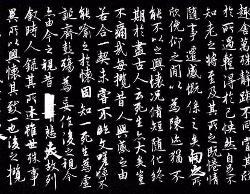 於所遇蹔得於己快然自足不
知老之將至及其所之既惓情
隨事遷感慨係之矣向之所
欣俛仰之閒以為陳迹猶不
能不以之興懷況脩短隨化終
期於盡古人云死生亦大矣豈
不痛哉每攬昔人興感之由
若合一契未嘗不臨文嗟悼不
能喻之於懷固知一死生為虛
誕齊彭殤為妄作後之視今
亦由今之視昔悲夫故列
敘時人錄其所述雖世殊事
異所以興懷其致一也後之攬